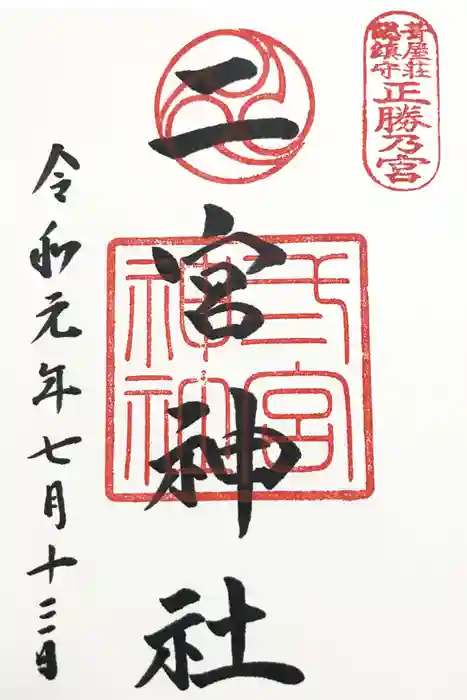 葺屋荘
鎮守
正勝乃宮
二宮神社
令和元年七月十三日